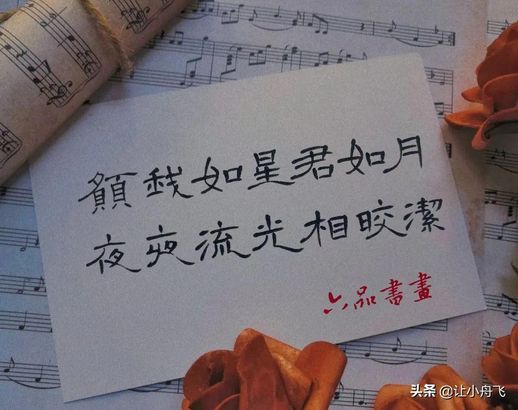 願我如星君如月
夜夜流光相皎潔
六品書畫
头条 @让小舟飞